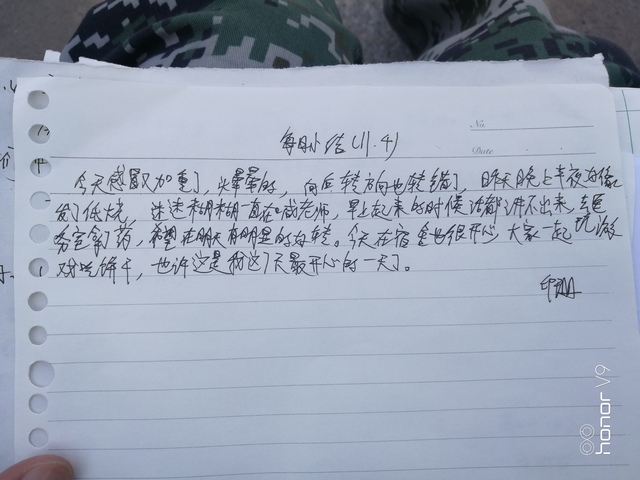 No.
Date
每日小结(11.4)
今天感冒又加重了,头晕晕的,向后转方向也转错了,昨天晚上半夜好像
发了低烧,迷迷糊糊一直在喊老师,早上起来的时候话都讲不出来,去医
务室拿了药,希望在明天有明显的好转。今天在宿舍也很开心,大家一起玩游
戏吃饼干,也许这是我这7天最开心的一天了。
honor V9